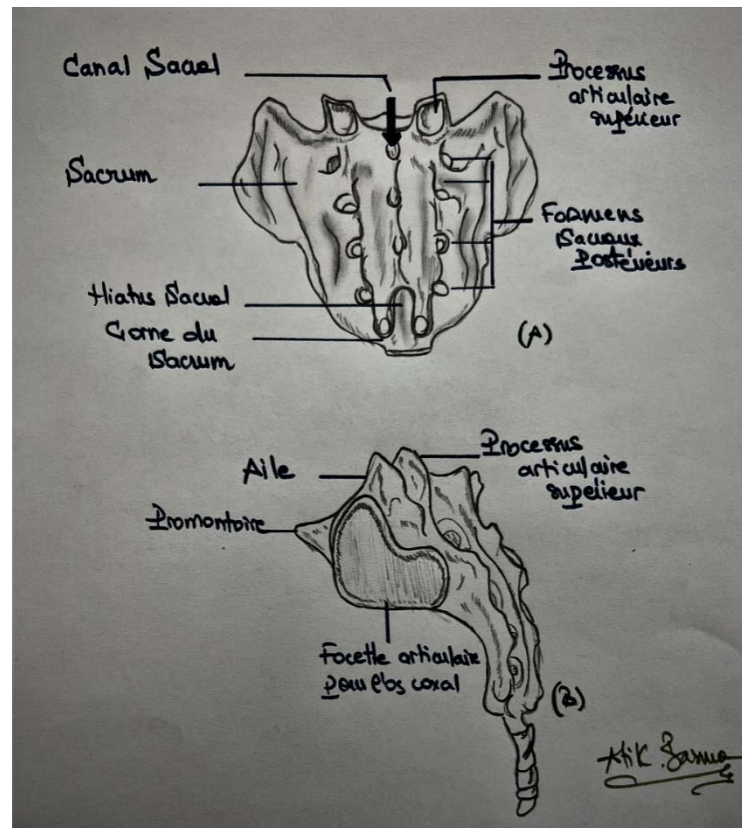 Canal Sacral
Processus
articulaire
supérieur
Sacrum
Foramens
Sacraux
Postérieurs
Hiatus Sacral
Corne du
Sacrum
(A)
Processus
articulaire
superieur
Aile
Promontoire
Facette articulaire
Pour l'os coxal
(B)
Atik